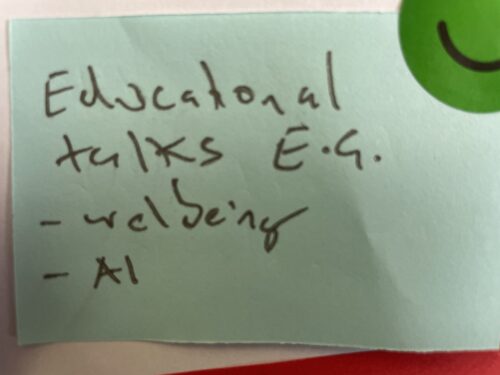 Educational
talks E.G.
- welbeing
- AI